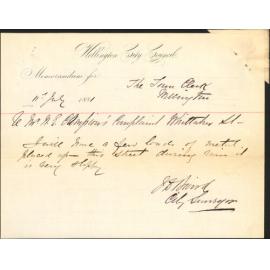 Wellington City Council
Memorandum for
The Town Clerk
Wellington
11th July 1881
Re Mr W E Champion's Complaint Whittaker St—
I will have a few loads of metal
placed upon this street during
is very slight
J D Baird
City Surveyor